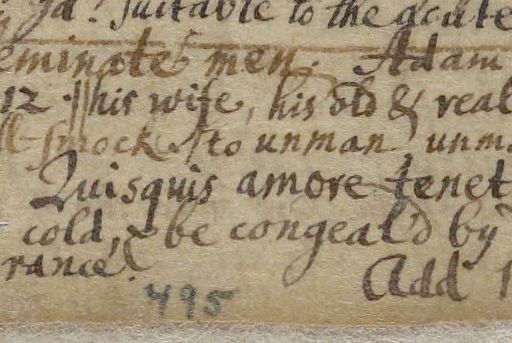 suitable to the acute
eminate men. Adam
12. his wife, his old & real
smock to unman, unm
Quisquis amore tenet
cold, & be congeal'd by
rance. Add
495